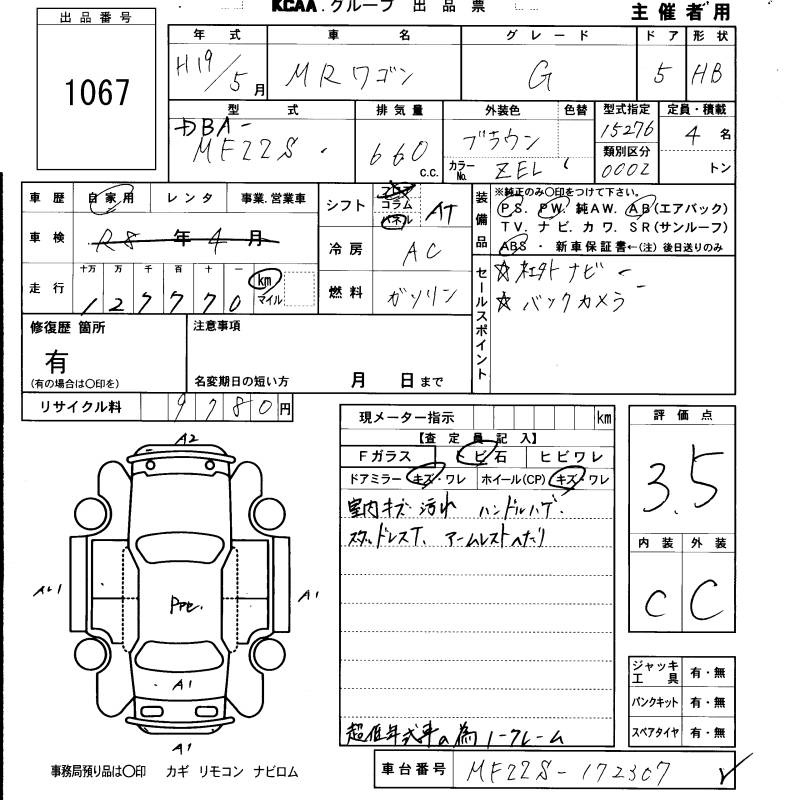 KCAA.グループ 出品票
主催者用
出品番号
1067
年式 車名 グレード ドア 形状
H19/5月 MRワゴン G 5 HB
型式 排気量 外装色 色替 型式指定 定員・積載
DBA-
MF22S 660 c.c. ブラウン 15276 4名
カラーNo. ZEL 類別区分 0002 トン
車歴 自家用 レンタ 事業.営業車
車検 R8年4月
走行 十万 万 千 百 十 一 km マイル
127770
シフト フロア コラム パネル AT
冷房 AC
燃料 ガソリン
装備品 ※純正のみ○印をつけて下さい。
P S. PW. 純AW. AB(エアバック)
TV. ナビ. カワ. SR(サンルーフ)
ABS ・ 新車保証書←(注) 後日送りのみ
セールスポイント
☆社外ナビ
☆バックカメラ
修復歴 箇所
有
(有の場合は○印を)
注意事項
名変期日の短い方 月 日まで
リサイクル料 9780円
現メーター指示 km
【査定員記入】
Fガラス ヒビ石 ヒビワレ
ドアミラー キズ・ワレ ホイール(CP) キズ・ワレ
室内キズ 汚れ ハンドルハゲ.
スタッドレスT. アームレストへたり
超低年式車の為ノークレーム
評価点
3.5
内装 外装
C C
ジャッキ工具 有・無
パンクキット 有・無
スペアタイヤ 有・無
A2
A1
A1
A1
事務局預り品は○印 カギ リモコン ナビロム
車台番号 MF22S-172307